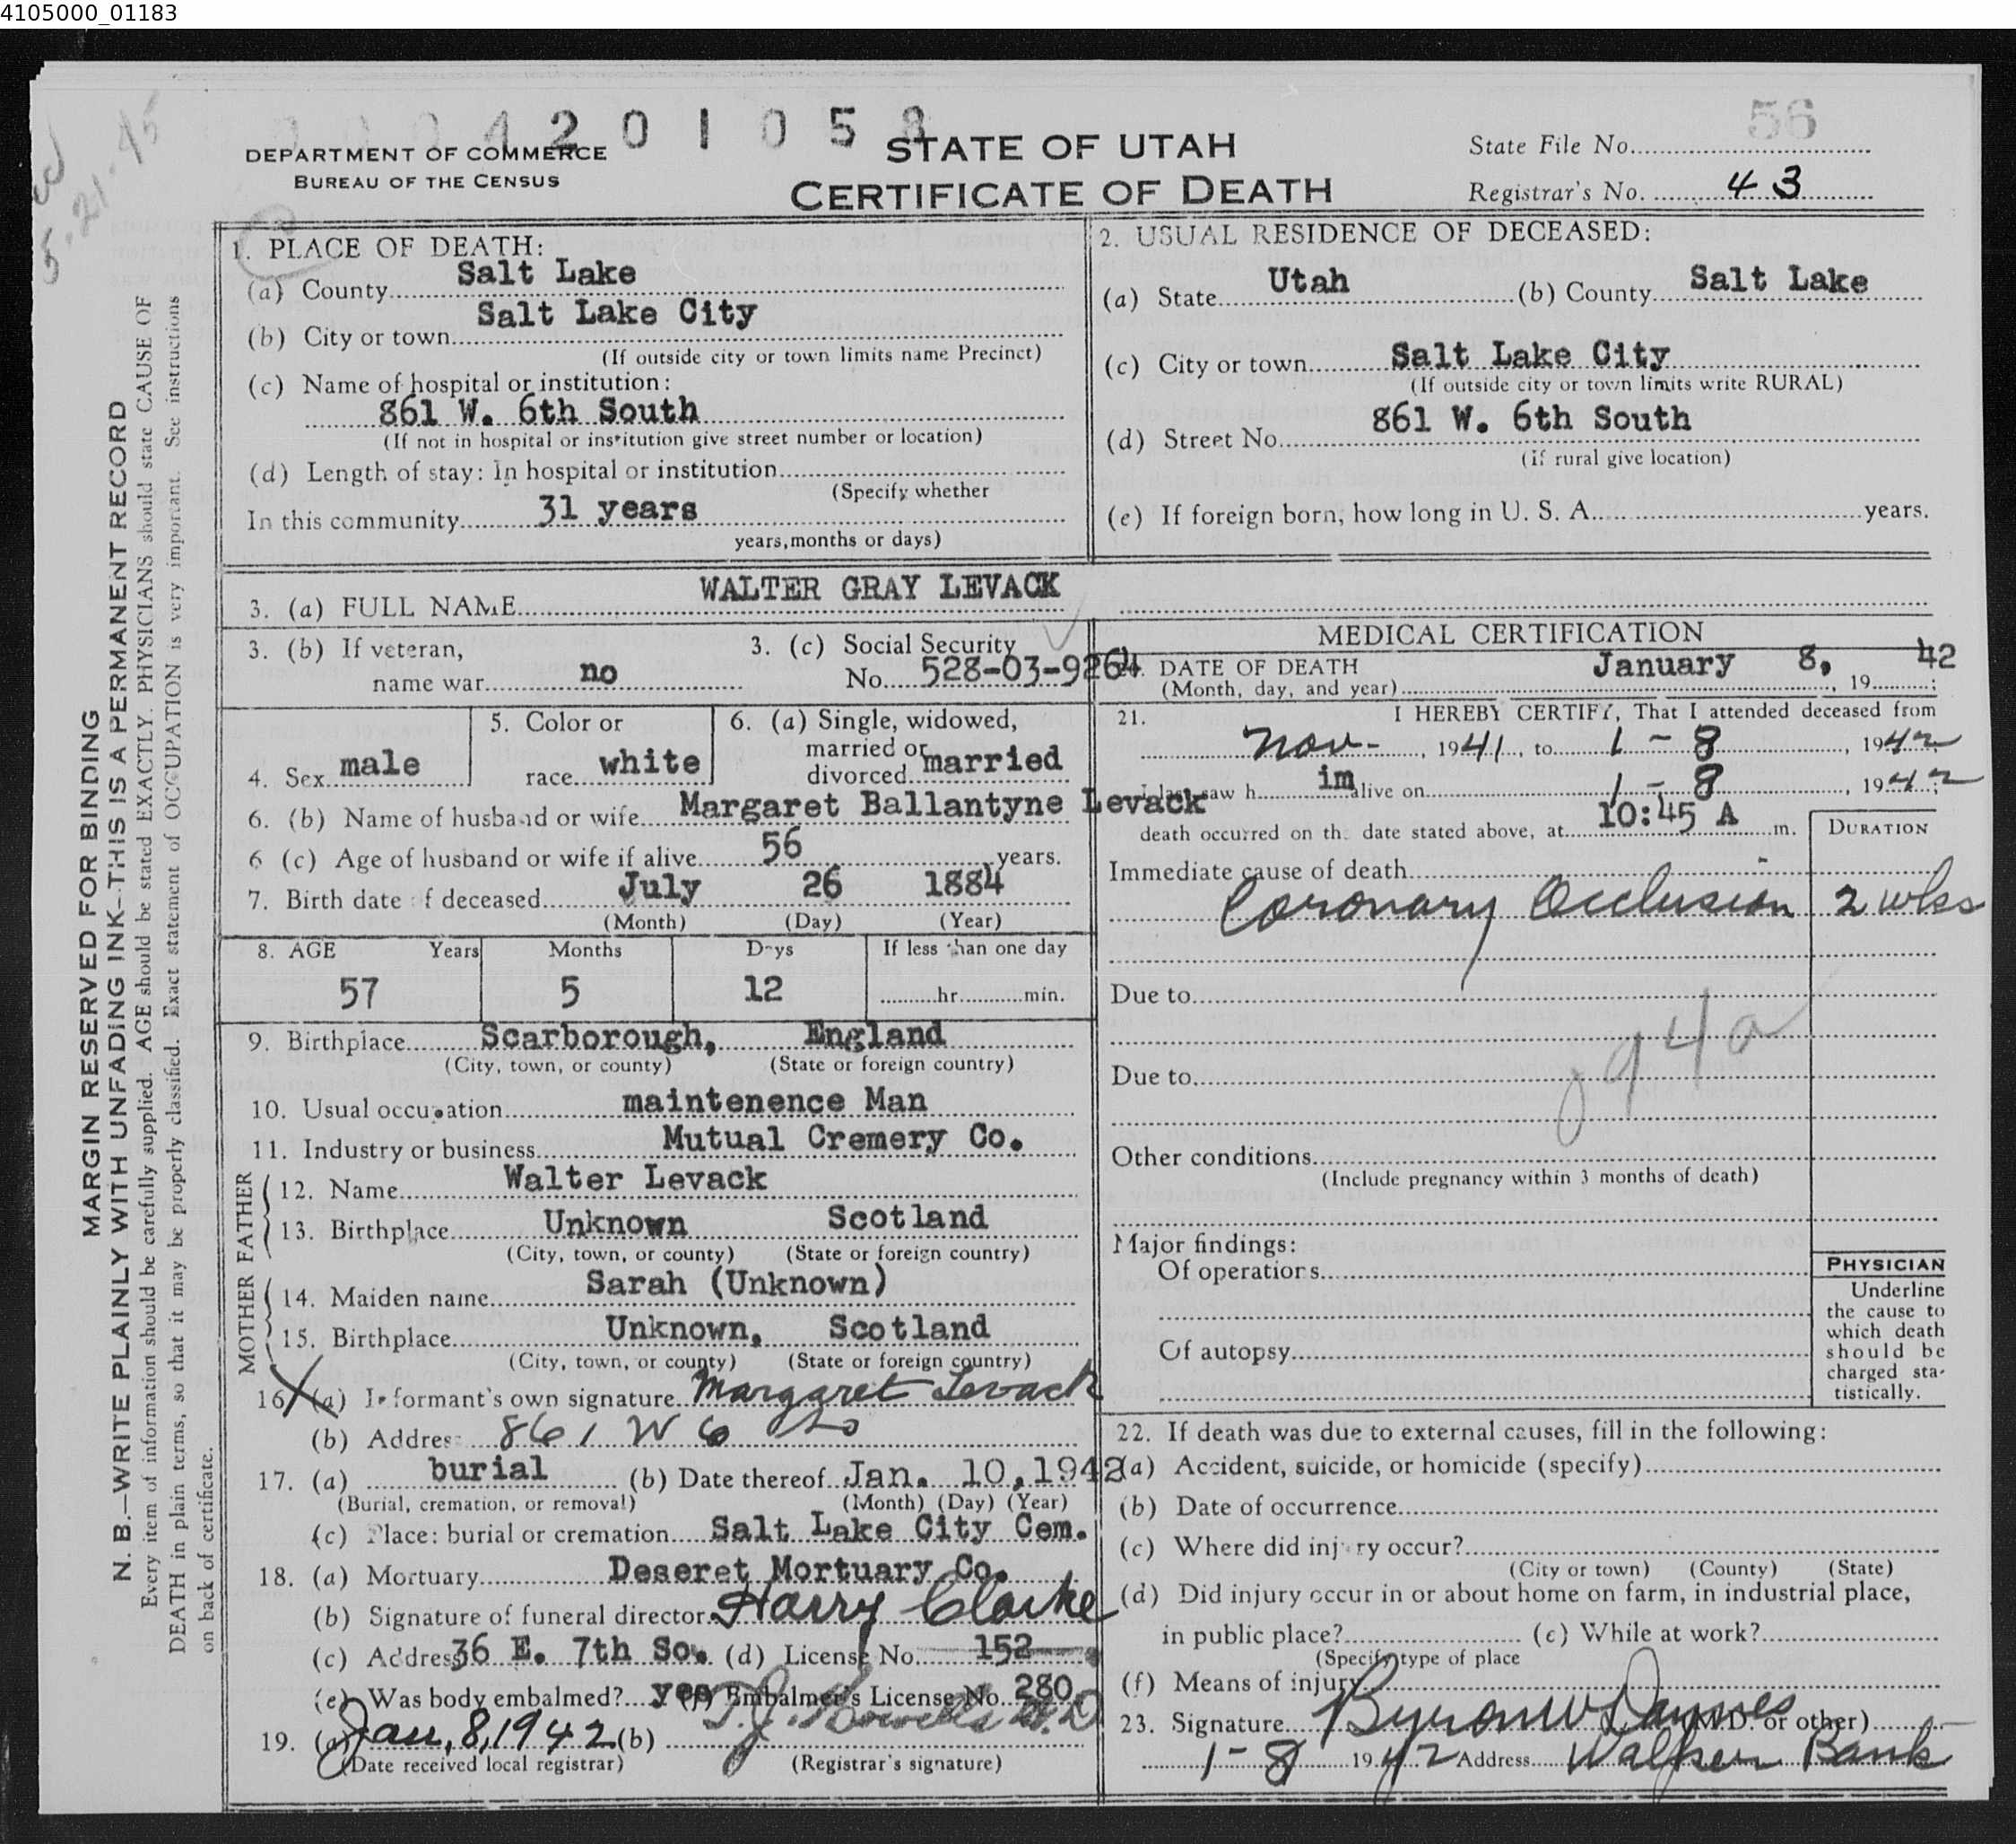 4105000_01183
4201058
56
DEPARTMENT OF COMMERCE
BUREAU OF THE CENSUS
STATE OF UTAH
CERTIFICATE OF DEATH
State File No.
Registrar's No. 43
5.21.45
MARGIN RESERVED FOR BINDING
N. B.—WRITE PLAINLY WITH UNFADING INK--THIS IS A PERMANENT RECORD
Every item of information should be carefully supplied. AGE should be stated EXACTLY. PHYSICIANS should state CAUSE OF
DEATH in plain terms, so that it may be properly classified. Exact statement of OCCUPATION is very important. See instructions
on back of certificate.
1. PLACE OF DEATH:
(a) County Salt Lake
(b) City or town Salt Lake City
(If outside city or town limits name Precinct)
(c) Name of hospital or institution:
861 W. 6th South
(If not in hospital or institution give street number or location)
(d) Length of stay: In hospital or institution
(Specify whether
In this community 31 years
years, months or days)
2. USUAL RESIDENCE OF DECEASED:
(a) State Utah (b) County Salt Lake
(c) City or town Salt Lake City
(If outside city or town limits write RURAL)
(d) Street No. 861 W. 6th South
(if rural give location)
(e) If foreign born, how long in U. S. A. years.
3. (a) FULL NAME WALTER GRAY LEVACK
3. (b) If veteran, name war no
3. (c) Social Security No. 528-03-9264
4. Sex male
5. Color or race white
6. (a) Single, widowed, married or divorced married
6. (b) Name of husband or wife Margaret Ballantyne Levack
6 (c) Age of husband or wife if alive 56 years.
7. Birth date of deceased July 26 1884
(Month) (Day) (Year)
8. AGE Years Months Days If less than one day
57 5 12 hr. min.
9. Birthplace Scarborough, England
(City, town, or county) (State or foreign country)
10. Usual occupation maintenence Man
11. Industry or business Mutual Cremery Co.
FATHER
12. Name Walter Levack
13. Birthplace Unknown Scotland
(City, town, or county) (State or foreign country)
MOTHER
14. Maiden name Sarah (Unknown)
15. Birthplace Unknown, Scotland
(City, town, or county) (State or foreign country)
16 (a) Informant's own signature Margaret Levack
(b) Address 861 W 6 So
17. (a) burial (b) Date thereof Jan. 10, 1942
(Burial, cremation, or removal) (Month) (Day) (Year)
(c) Place: burial or cremation Salt Lake City Cem.
18. (a) Mortuary Deseret Mortuary Co.
(b) Signature of funeral director Harry Clarke
(c) Address 36 E. 7th So. (d) License No. 152
(e) Was body embalmed? yes (f) Embalmer's License No. 280
19. (a) Jan, 8, 1942 (b) T.J. Howells M.D
(Date received local registrar) (Registrar's signature)
MEDICAL CERTIFICATION
DATE OF DEATH January 8, 1942;
(Month, day, and year)
21. I HEREBY CERTIFY, That I attended deceased from
Nov- , 1941, to 1-8 , 1942
I last saw h im alive on 1-8 , 1942;
death occurred on the date stated above, at 10:45 A m.
DURATION
Immediate cause of death
Coronary Occlusion 2 wks
Due to
94a
Due to
Other conditions
(Include pregnancy within 3 months of death)
Major findings:
Of operations
Of autopsy
PHYSICIAN
Underline
the cause to
which death
should be
charged sta-
tistically.
22. If death was due to external causes, fill in the following:
(a) Accident, suicide, or homicide (specify)
(b) Date of occurrence
(c) Where did injury occur?
(City or town) (County) (State)
(d) Did injury occur in or about home on farm, in industrial place,
in public place? (e) While at work?
(Specify type of place
(f) Means of injury
23. Signature Byron W Daynes (M.D. or other)
1-8 1942 Address Walker Bank